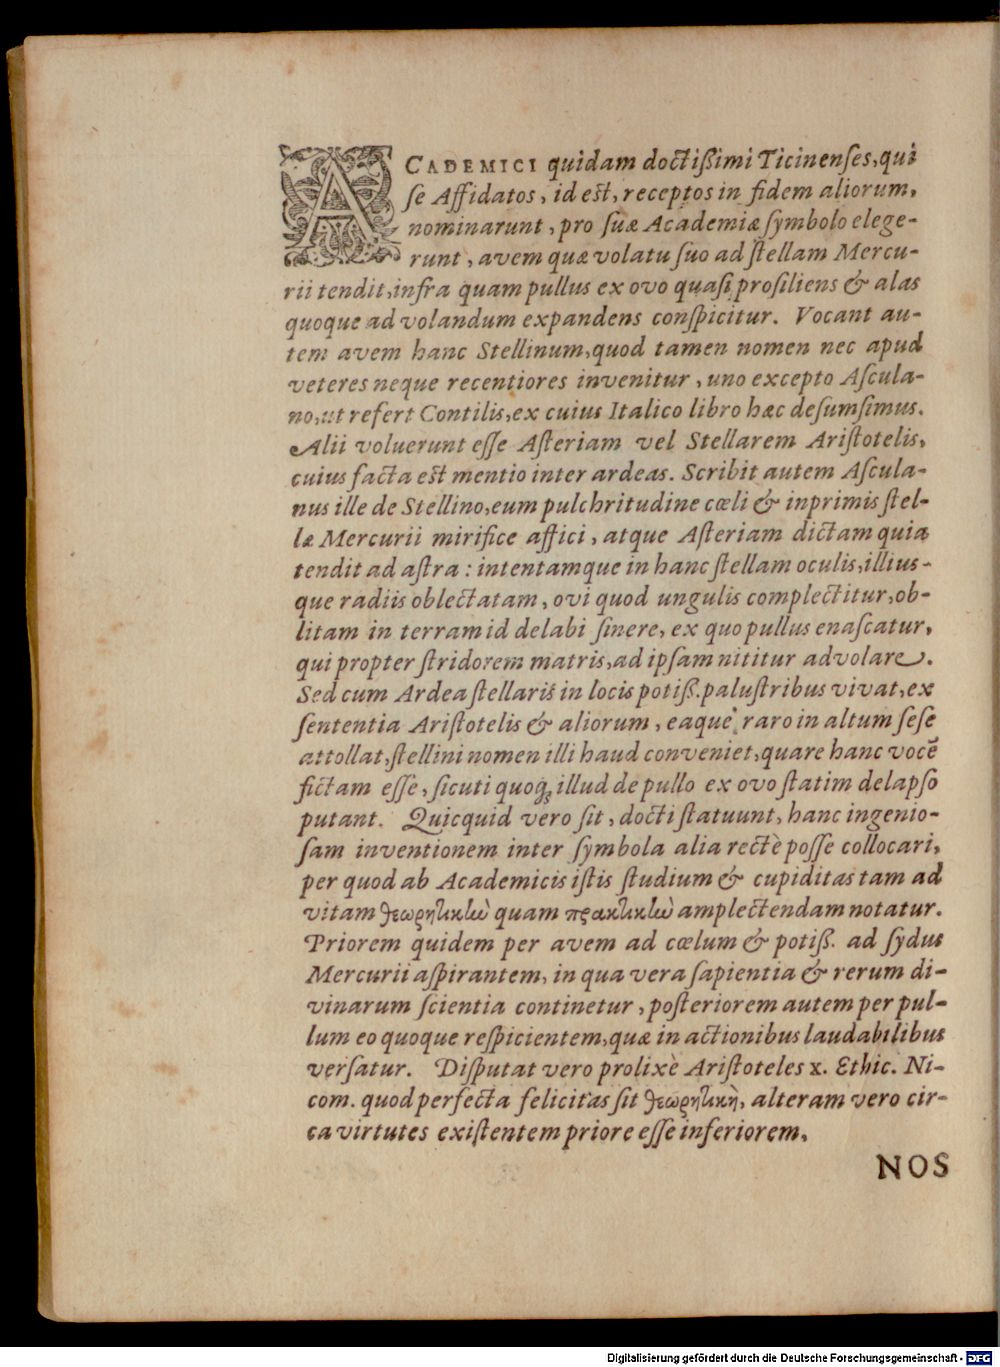 ACADEMICI quidam doctißimi Ticinenses, qui
se Affidatos, id est, receptos in fidem aliorum,
nominarunt, pro suæ Academiæ symbolo elege-
runt, avem quæ volatu suo ad stellam Mercu-
rii tendit, infra quam pullus ex ovo quasi prosiliens & alas
quoque ad volandum expandens conspicitur. Vocant au-
tem avem hanc Stellinum, quod tamen nomen nec apud
veteres neque recentiores invenitur, uno excepto Ascula-
no, ut refert Contilis, ex cuius Italico libro hæc desumsimus.
Alii voluerunt esse Asteriam vel Stellarem Aristotelis,
cuius facta est mentio inter ardeas. Scribit autem Ascula-
nus ille de Stellino, eum pulchritudine cœli & inprimis stel-
læ Mercurii mirifice affici, atque Asteriam dictam quia
tendit ad astra: intentamque in hanc stellam oculis, illius-
que radiis oblectatam, ovi quod ungulis complectitur, ob-
litam in terram id delabi sinere, ex quo pullus enascatur,
qui propter stridorem matris, ad ipsam nititur advolare.
Sed cum Ardea stellaris in locis potiß. palustribus vivat, ex
sententia Aristotelis & aliorum, eaque raro in altum sese
attollat, stellini nomen illi haud conveniet, quare hanc vocē
fictam esse, sicuti quoq; illud de pullo ex ovo statim delapso
putant. Quicquid vero sit, docti statuunt, hanc ingenio-
sam inventionem inter symbola alia rectè posse collocari,
per quod ab Academicis istis studium & cupiditas tam ad
vitam θεωρητικὼ quam πρακτικὼ amplectendam notatur.
Priorem quidem per avem ad cœlum & potiß. ad sydus
Mercurii aspirantem, in qua vera sapientia & rerum di-
vinarum scientia continetur, posteriorem autem per pul-
lum eo quoque respicientem, quæ in actionibus laudabilibus
versatur. Disputat vero prolixè Aristoteles x. Ethic. Ni-
com. quod perfecta felicitas sit θεωρητικὴ, alteram vero cir-
ca virtutes existentem priore esse inferiorem.
NOS
Digitalisierung gefördert durch die Deutsche Forschungsgemeinschaft - DFG